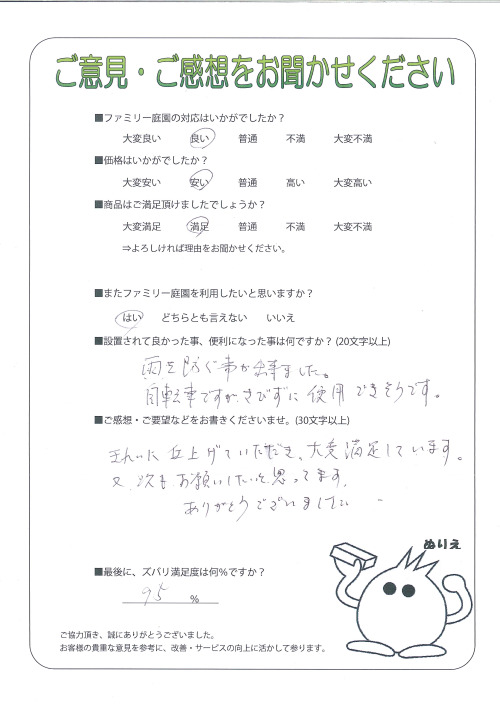 ご意見・ご感想をお聞かせください
■ファミリー庭園の対応はいかがでしたか？
大変良い 良い 普通 不満 大変不満
■価格はいかがでしたか？
大変安い 安い 普通 高い 大変高い
■商品はご満足頂けましたでしょうか？
大変満足 満足 普通 不満 大変不満
⇒よろしければ理由をお聞かせください。
■またファミリー庭園を利用したいと思いますか？
はい どちらとも言えない いいえ
■設置されて良かった事、便利になった事は何ですか？(20文字以上)
雨を防ぐ事が出来ました。
自転車ですが、さびずに使用できそうです。
■ご感想・ご要望などをお書きくださいませ。(30文字以上)
きれいに仕上げていただき、大変満足しています。
又、次もお願いしたいと思ってます。
ありがとうございました
ぬりえ
■最後に、ズバリ満足度は何％ですか？
95 %
ご協力頂き、誠にありがとうございました。
お客様の貴重な意見を参考に、改善・サービスの向上に活かして参ります。